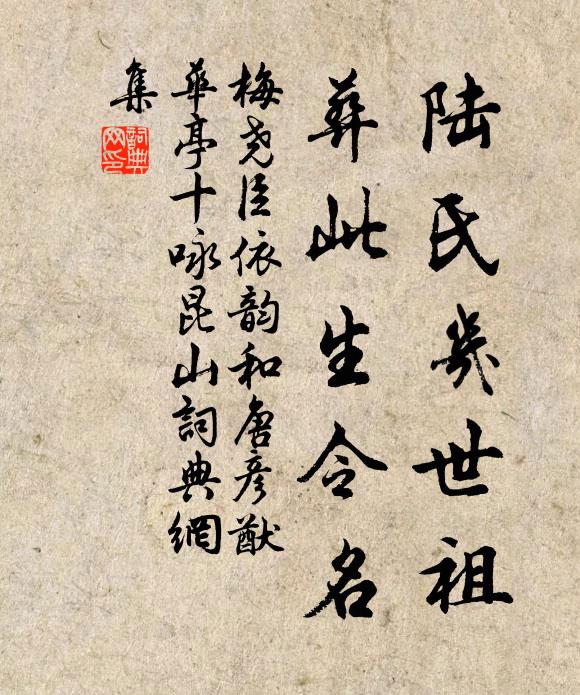 陆氏几世祖
葬此生令名
梅尧臣依韵和唐彦猷
华亭十咏昆山詞典網
集
詞典
网印